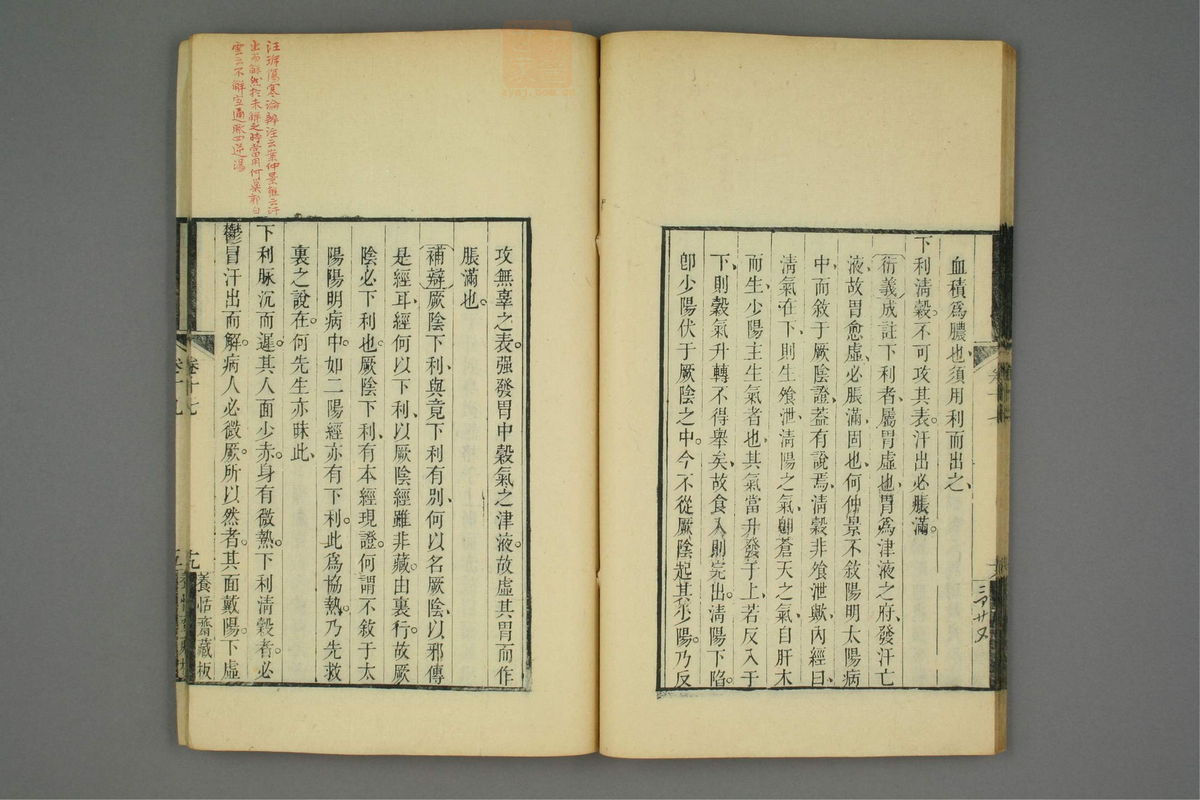 血積爲膿也、須用利而出之、
下利淸穀。不可攻其表。汗出必脹滿。
衍義成註下利者、屬胃虛也、胃爲津液之府、發汗亡
液、故胃愈虛、必脹滿、固也、何仲景不敘陽明太陽病
中、而敘于厥陰證、葢有說焉、淸穀非飧泄歟、內經曰、
淸氣在下、則生飧泄、淸陽之氣、卽蒼天之氣、自肝木
而生、少陽主生氣者也、其氣當升發于上、若反入于
下、則穀氣升轉不得舉矣、故食入則完出。淸陽下陷。
卽少陽伏于厥陰之中。今不從厥陰起其少陽。乃反
攻無辜之表。强發胃中穀氣之津液。故虛其胃而作
脹滿也。
補辯厥陰下利、與竟下利有別、何以名厥陰、以邪傳
是經耳、經何以下利、以厥陰經雖非藏。由裏行。故厥
陰必下利也。厥陰下利、有本經現證。何謂不敘于太
陽陽明病中。如二陽經亦有下利。此爲協熱。乃先救
裏之說。在何先生亦昧此、
下利脈沉而遲。其人面少赤。身有微熱。下利淸穀者。必
鬱冒汗出而解。病人必微厥。所以然者。其面戴陽。下虛
卷十七
養恬齋藏板
汪琥傷寒論辨注云葉仲景雖云汗
出而解然於未解之時當用何藥郭白
雲云不解宜通脈四逆湯